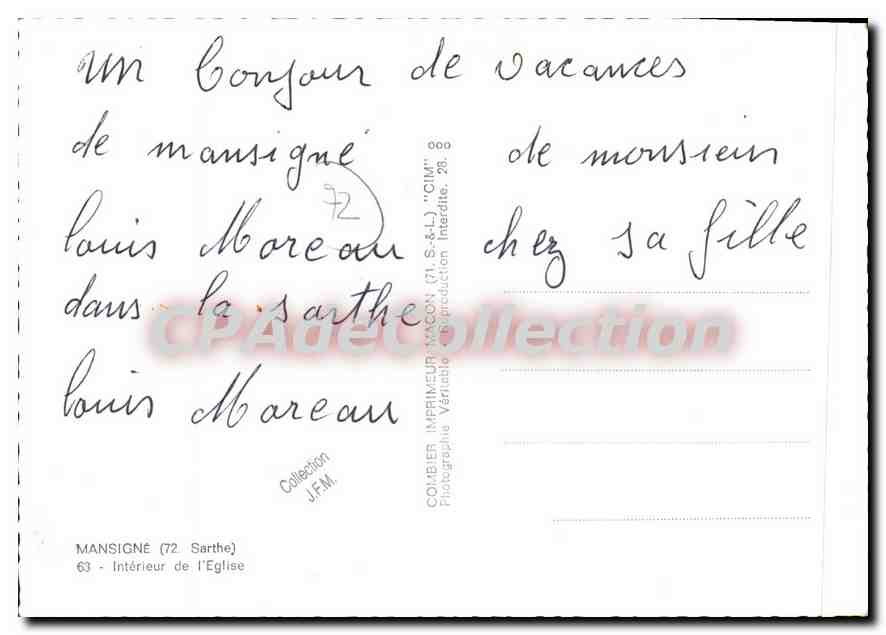 un bonjour de vacances
de mansigné de monsieur
72
louis Moreau chez sa fille
dans la sarthe
louis Moreau
CPAdeCollection
COMBIER IMPRIMEUR MACON (71. S.-&-L.) "CIM"
Photographie Véritable - Reproduction Interdite. 28.
Collection
J.F.M.
MANSIGNÉ (72. Sarthe)
63 - Intérieur de l'Eglise